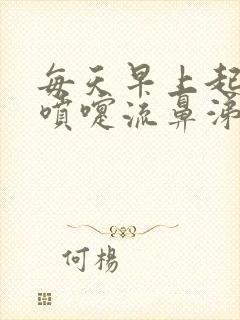 每天早上起
噴嚏流鼻涕
何楊